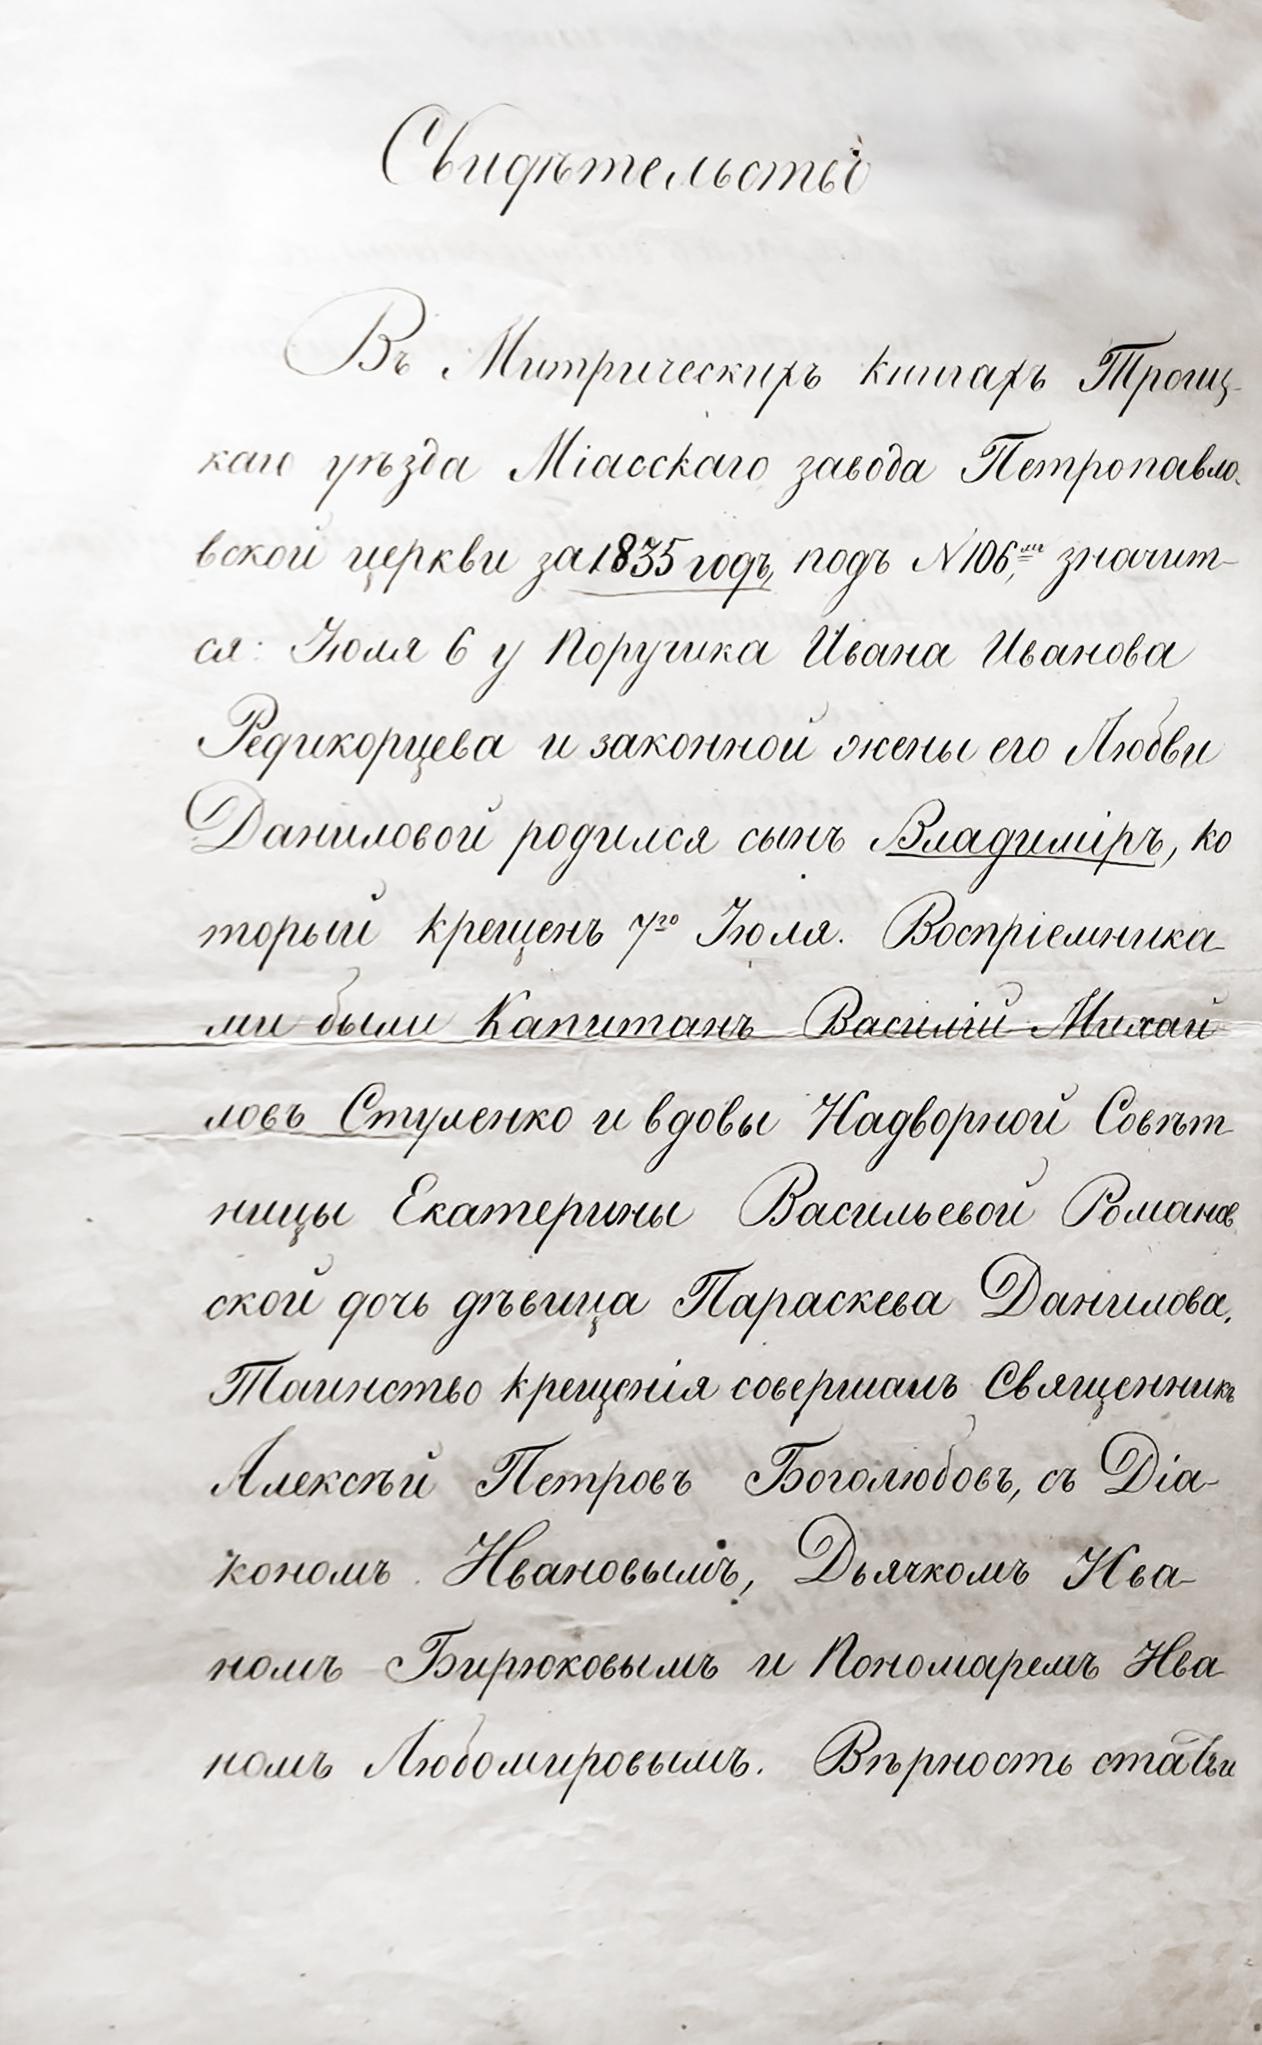 Свидѣтельство
Въ Митрическихъ книгахъ Троиц-
каго уѣзда Міасскаго завода Петропавло-
вской церкви за 1835 годъ, подъ N 106,мъ значит-
ся: Іюля 6 у Поручика Ивана Иванова
Редикорцева и законной жены его Любви
Даниловой родился сынъ Владиміръ, ко
торый крещенъ 7го Іюля. Воспріемника-
ми были Капитанъ Василій Михай
ловъ Стуленко и вдовы Надворной Совѣт
ницы Екатерины Васильевой Романов
ской дочь дѣвица Параскева Данилова.
Таинство крещенія совершалъ Священникъ
Алексѣй Петровъ Боголюбовъ, съ Діа-
кономъ Ивановымъ, Дьячкомъ Ива-
номъ Бирюковымъ и Пономаремъ Ива
номъ Любомировымъ. Вѣрность статьи